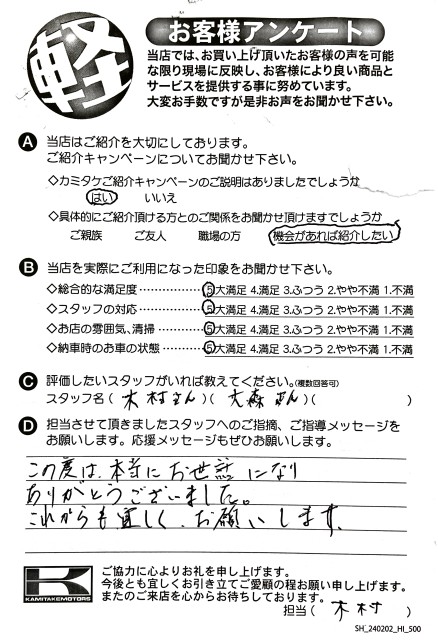 軽
お客様アンケート
当店では、お買い上げ頂いたお客様の声を可能
な限り現場に反映し、お客様により良い商品と
サービスを提供する事に努めています。
大変お手数ですが是非お声をお聞かせ下さい。
A 当店はご紹介を大切にしております。
ご紹介キャンペーンについてお聞かせ下さい。
◇カミタケご紹介キャンペーンのご説明はありましたでしょうか
はい いいえ
◇具体的にご紹介頂ける方とのご関係をお聞かせ頂けますでしょうか
ご親族 ご友人 職場の方 機会があれば紹介したい
B 当店を実際にご利用になった印象をお聞かせ下さい。
◇総合的な満足度……………5大満足 4.満足 3.ふつう 2.やや不満 1.不満
◇スタッフの対応……………5大満足 4.満足 3.ふつう 2.やや不満 1.不満
◇お店の雰囲気、清掃…………5大満足 4.満足 3.ふつう 2.やや不満 1.不満
◇納車時のお車の状態…………5大満足 4.満足 3.ふつう 2.やや不満 1.不満
C 評価したいスタッフがいれば教えてください。(複数回答可)
スタッフ名(木村さん)(大森さん)( )
D 担当させて頂きましたスタッフへのご指摘、ご指導メッセージを
お願いします。応援メッセージもぜひお願いします。
この度は、本当にお世話になり
ありがとうございました。
これからも宜しく、お願いします。
KAMITAKEMOTORS
ご協力に心よりお礼を申し上げます。
今後とも宜しくお引き立てご愛顧の程お願い申し上げます。
またのご来店を心からお待ちしております。
担当( 木村 )
SH_240202_HI_500